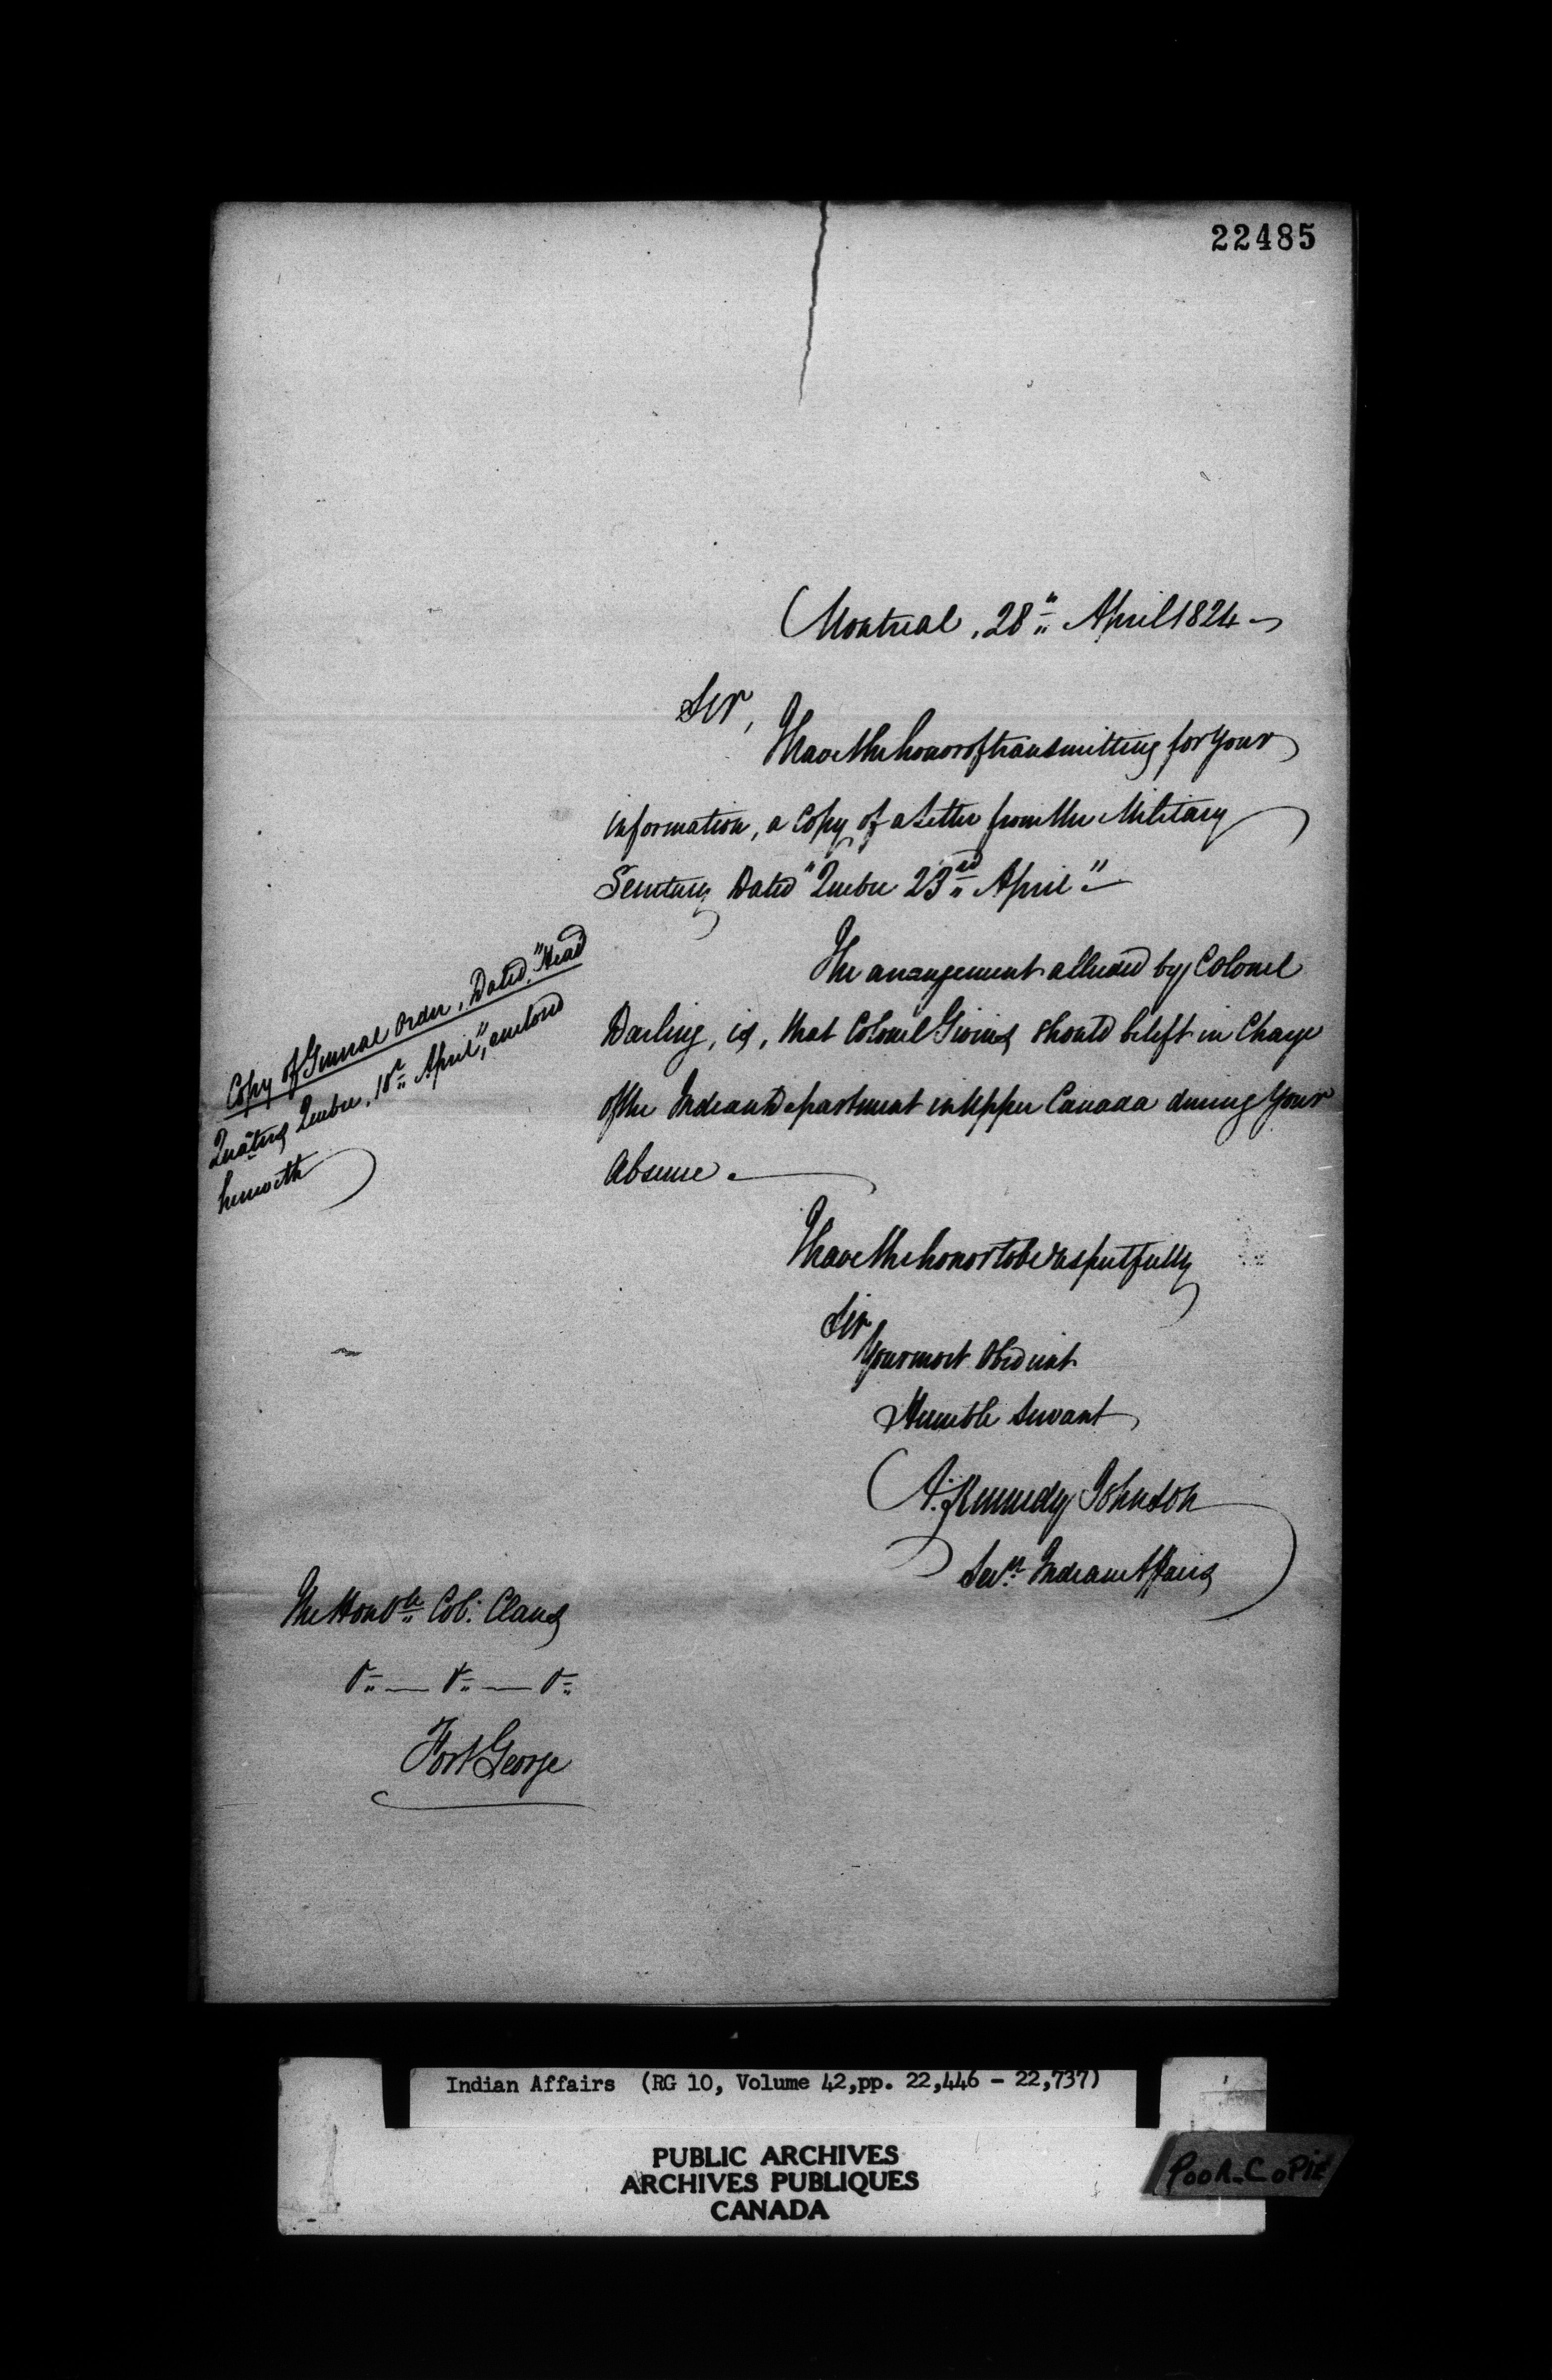 22485
Montreal, 28th April 1824
Sir,
I have the honor of transmitting for your
information, a Copy of a Letter from the Military
Secretary Dated "Quebec 23rd April"
The arrangement alluded by Colonel
Darling, is, that Colonel Givins should be left in Charge
of the Indian Department in Upper Canada during your
Absence.
Copy of General Order, Dated, "Head
Quaters Quebec, 18th April", enclosed
herewith
I have the honor to be respectfully
Sir
Your most Obedient
Humble Servant
A. Kennedy Johnson
Secry. Indian Affairs
The Honble. Col: Claus
Fort George
Indian Affairs (RG 10, Volume 42, pp. 22,446 - 22,737)
PUBLIC ARCHIVES
ARCHIVES PUBLIQUES
CANADA
POOR COPIE